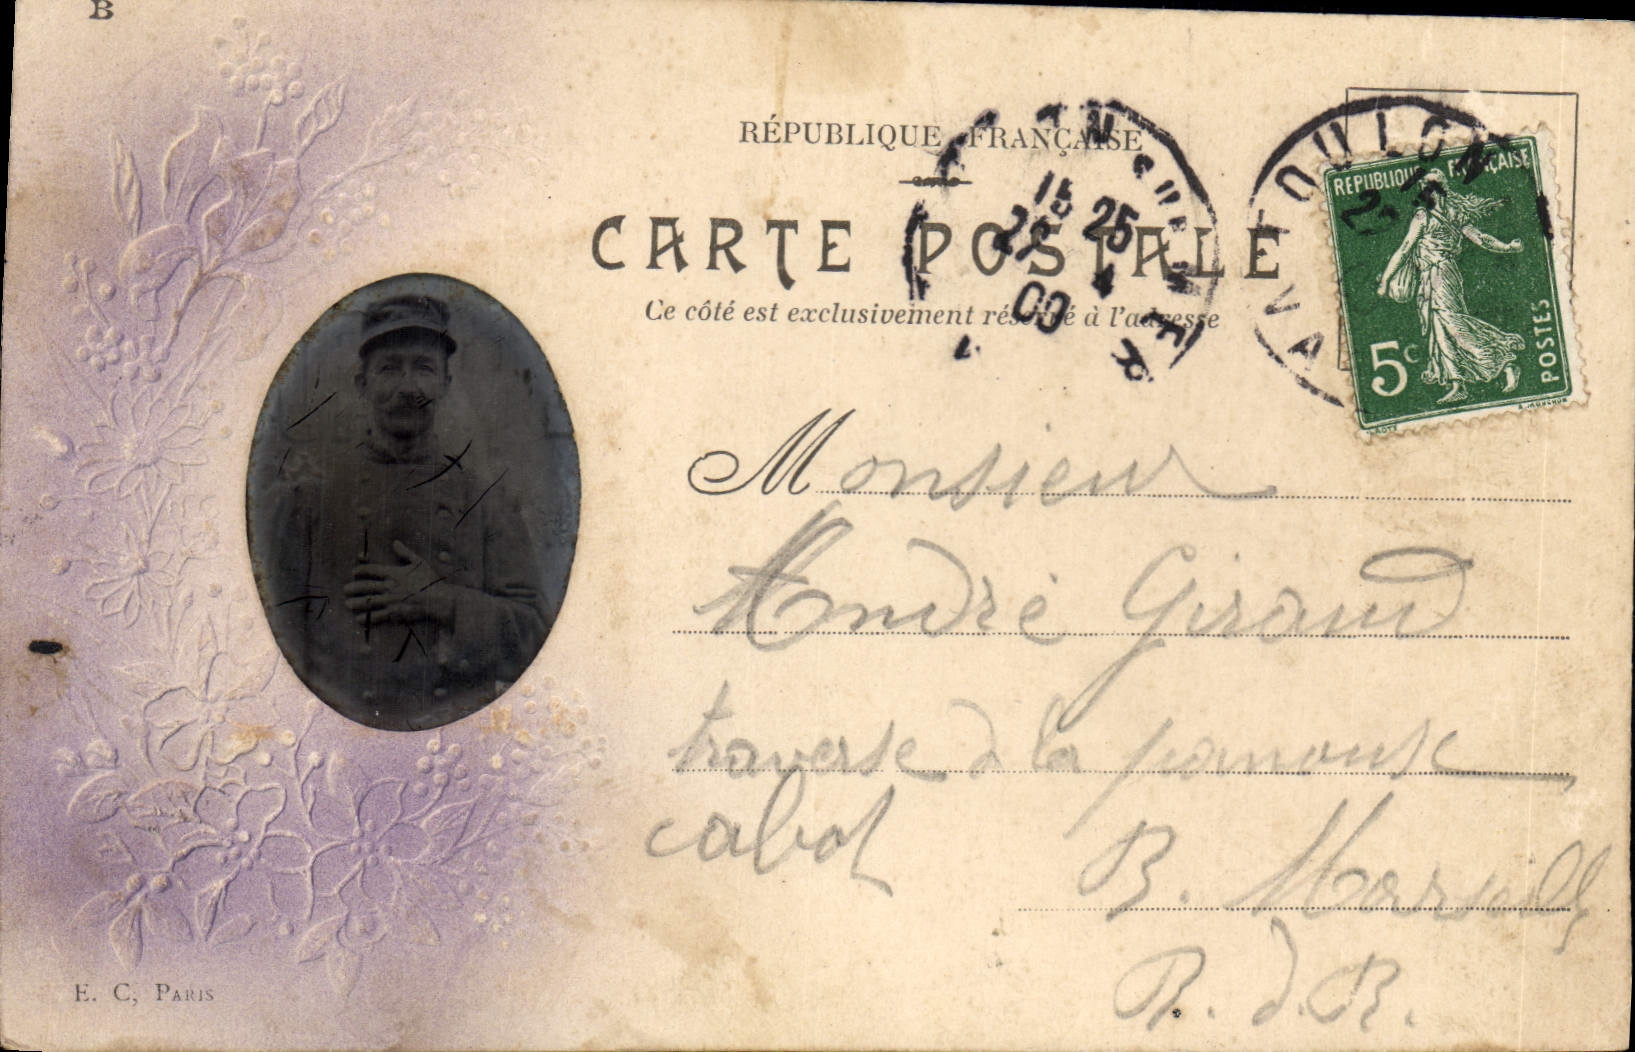 B
RÉPUBLIQUE FRANÇAISE
CARTE POSTALE
Ce côté est exclusivement réservé à l'adresse
TOULON
VAR
15 25
22 4
09
REPUBLIQUE FRANÇAISE
5c
POSTES
Monsieur
André Giraud
traverse de la panouse
cabot
B. Marseille
B. d. R.
E. C, PARIS